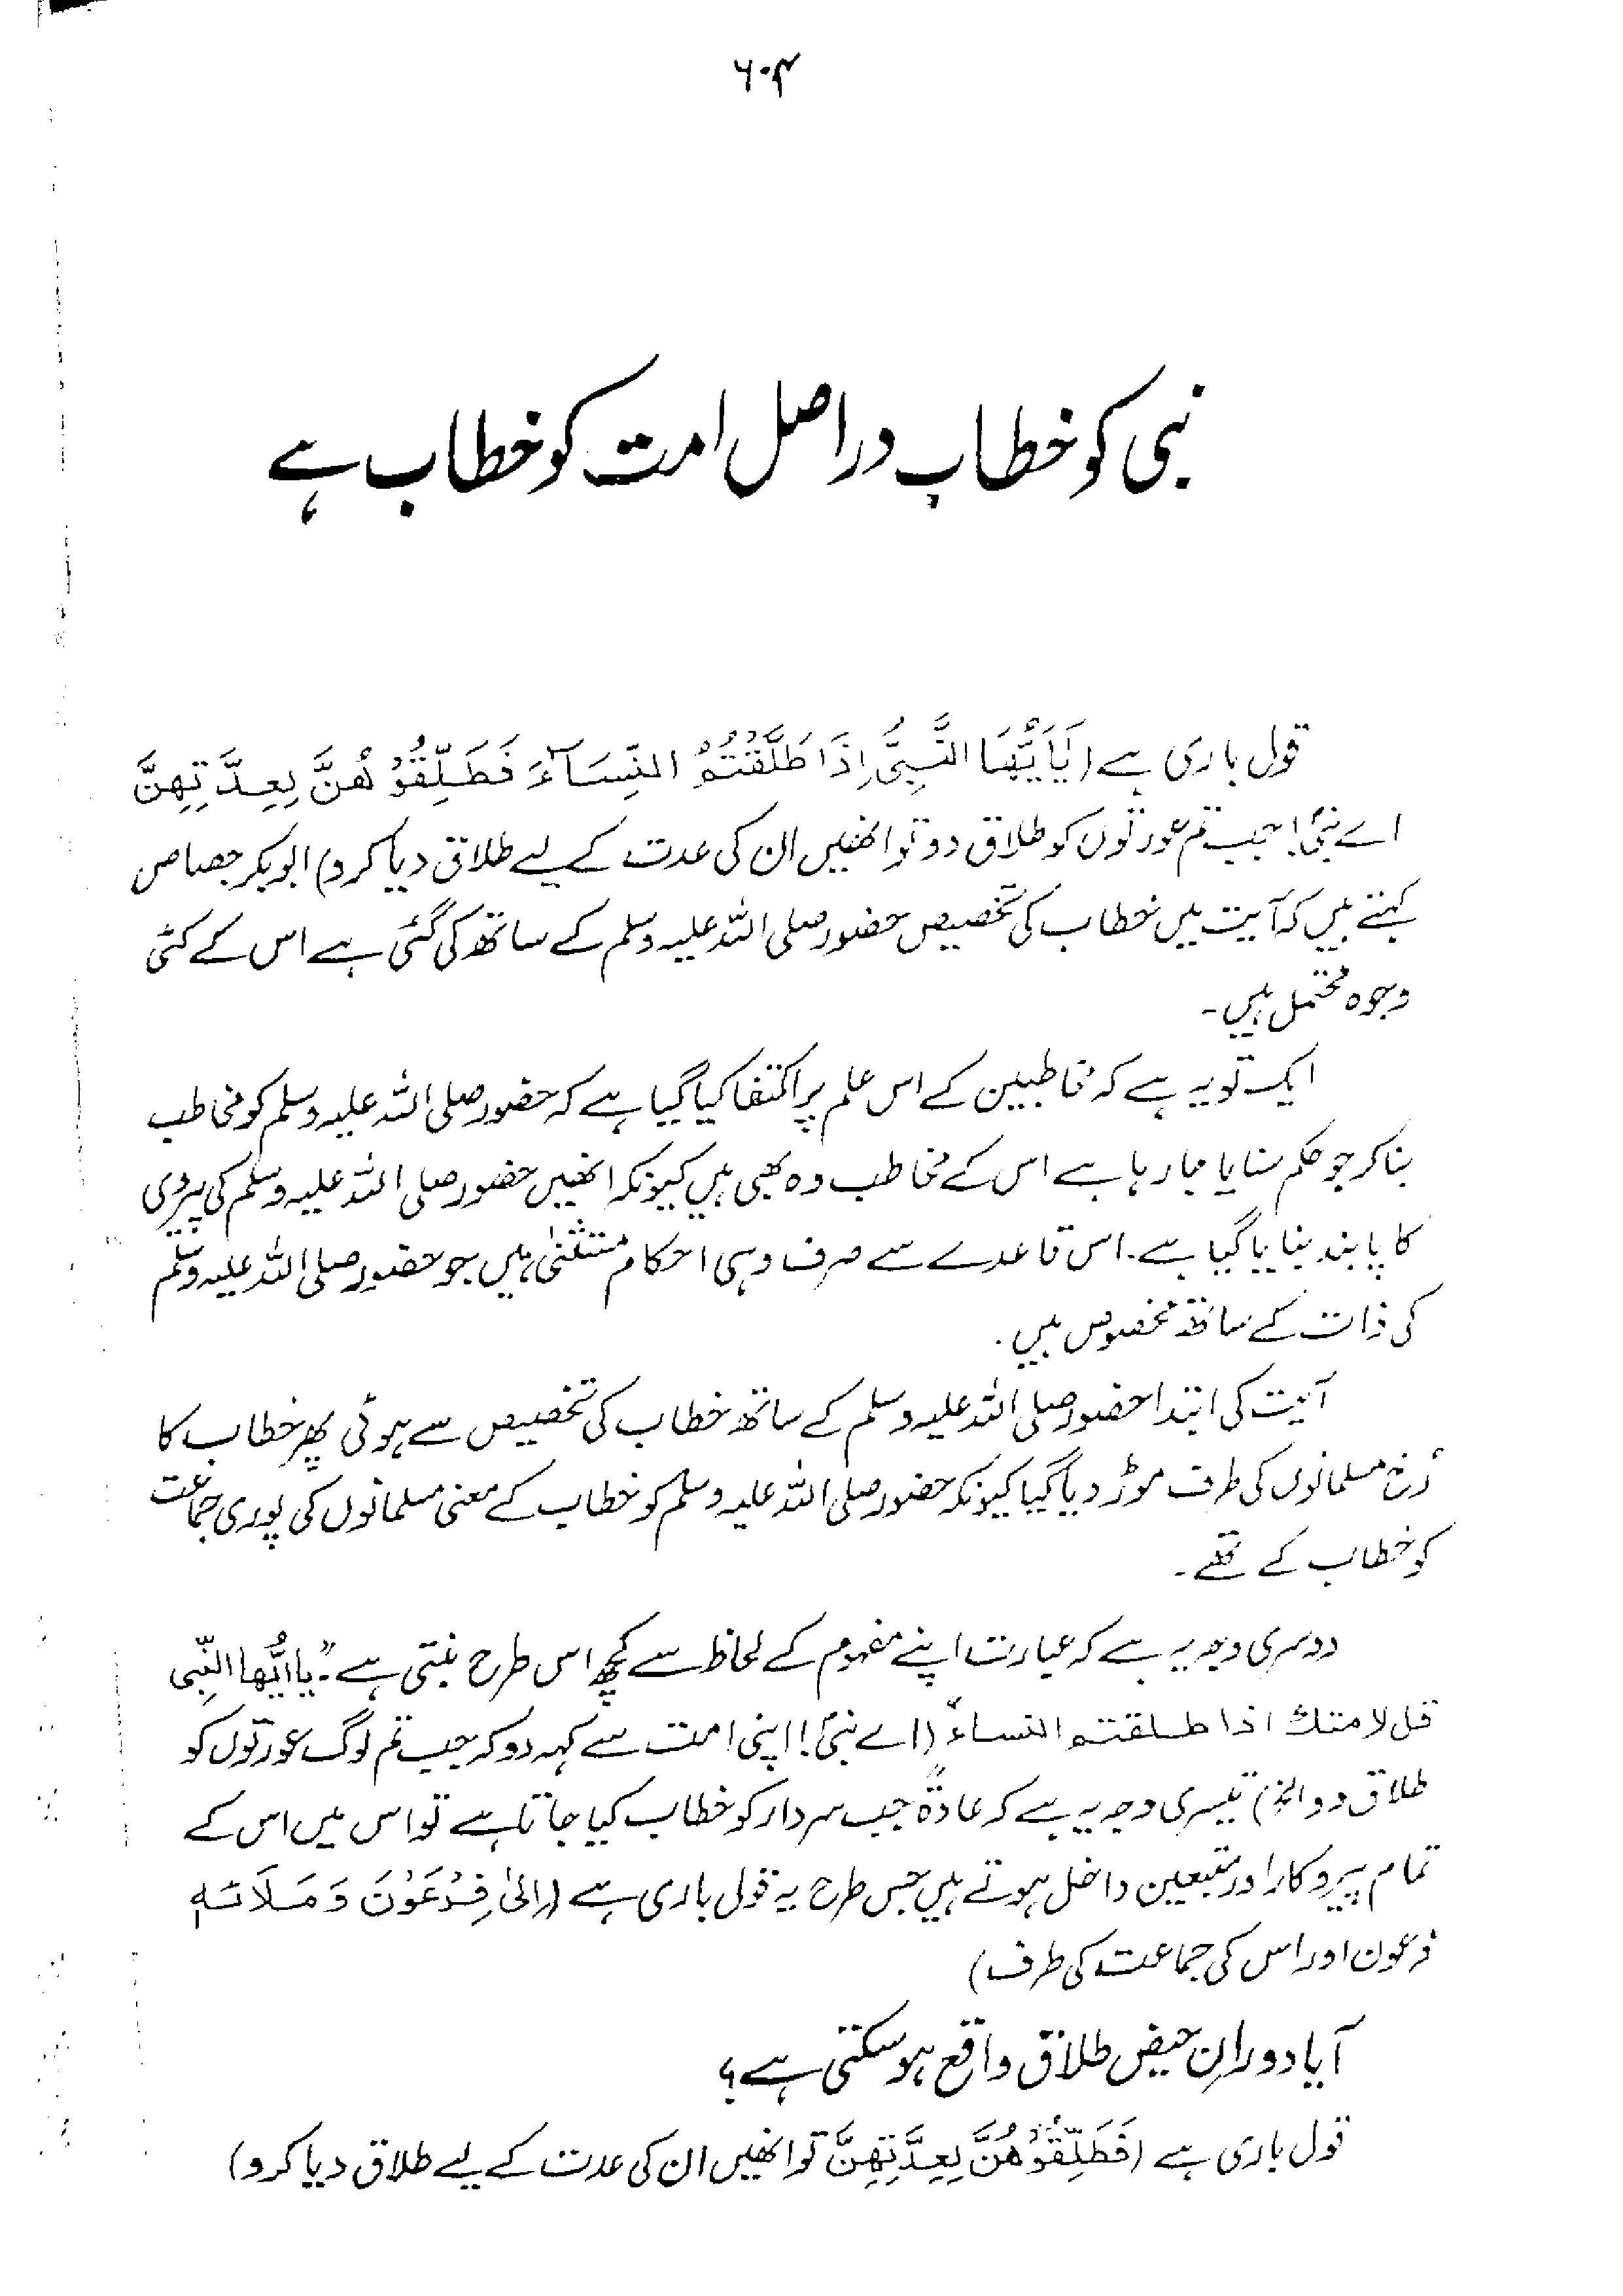 ۶۰۴
نبی کو خطاب دراصل امت کو خطاب ہے
قول باری ہے (يَٰٓأَيُّهَا النَّبِيُّ إِذَا طَلَّقْتُمُ النِّسَآءَ فَطَلِّقُوْهُنَّ لِعِدَّتِهِنَّ
اے نبیؐ! جب تم عورتوں کو طلاق دو تو انھیں ان کی عدت کے لیے طلاق دیا کرو) ابوبکر جصاص
کہتے ہیں کہ آیت میں خطاب کی تخصیص حضور صلی اللہ علیہ وسلم کے ساتھ کی گئی ہے اس کے کئی
وجوہ محتمل ہیں۔
ایک تو یہ ہے کہ مخاطبین کے اس علم پر اکتفا کیا گیا ہے کہ حضور صلی اللہ علیہ وسلم کو مخاطب
بنا کر جو حکم سنایا جا رہا ہے اس کے مخاطب وہ بھی ہیں کیونکہ انھیں حضور صلی اللہ علیہ وسلم کی پیروی
کا پابند بنایا گیا ہے۔ اس قاعدے سے صرف وہی احکام مستثنیٰ ہیں جو حضور صلی اللہ علیہ وسلم
کی ذات کے ساتھ مخصوص ہیں۔
آیت کی ابتدا حضور صلی اللہ علیہ وسلم کے ساتھ خطاب کی تخصیص سے ہوئی پھر خطاب کا
رُخ مسلمانوں کی طرف موڑ دیا گیا کیونکہ حضور صلی اللہ علیہ وسلم کو خطاب کے معنی مسلمانوں کی پوری جماعت
کو خطاب کے تھے۔
دوسری وجہ یہ ہے کہ عبارت اپنے مفہوم کے لحاظ سے کچھ اس طرح بنتی ہے۔ "یا ایُّھا النّبِی
قل لامتك اذا طلقتم النساء" (اے نبیؐ! اپنی امت سے کہہ دو کہ جب تم لوگ عورتوں کو
طلاق دو الخ) تیسری وجہ یہ ہے کہ عادۃً جب سردار کو خطاب کیا جاتا ہے تو اس میں اس کے
تمام پیروکار اور متبعین داخل ہوتے ہیں جس طرح یہ قول باری ہے (اِلىٰ فِرْعَوْنَ وَمَلَائِهٖ
فرعون اور اس کی جماعت کی طرف)
آیا دورانِ حیض طلاق واقع ہو سکتی ہے؟
قول باری ہے (فَطَلِّقُوْهُنَّ لِعِدَّتِهِنَّ تو انھیں ان کی عدت کے لیے طلاق دیا کرو)